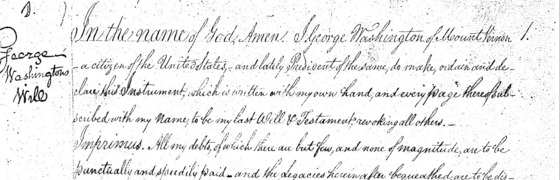 1.
George
Washingtons
Will
In the name of God, Amen. I, George Washington of Mount Vernon 1.
– a citizen of the United States, – and lately President of the same, do make, ordain and de-
clare this Instrument, which is written with my own hand, and every page thereof sub-
scribed with my Name, to be my last Will & Testament, revoking all others. –
Imprimus. All my debts, of which there are but few, and none of magnitude, are to be
punctually and speedily paid – and the Legacies hereinafter bequeathed are to be dis-